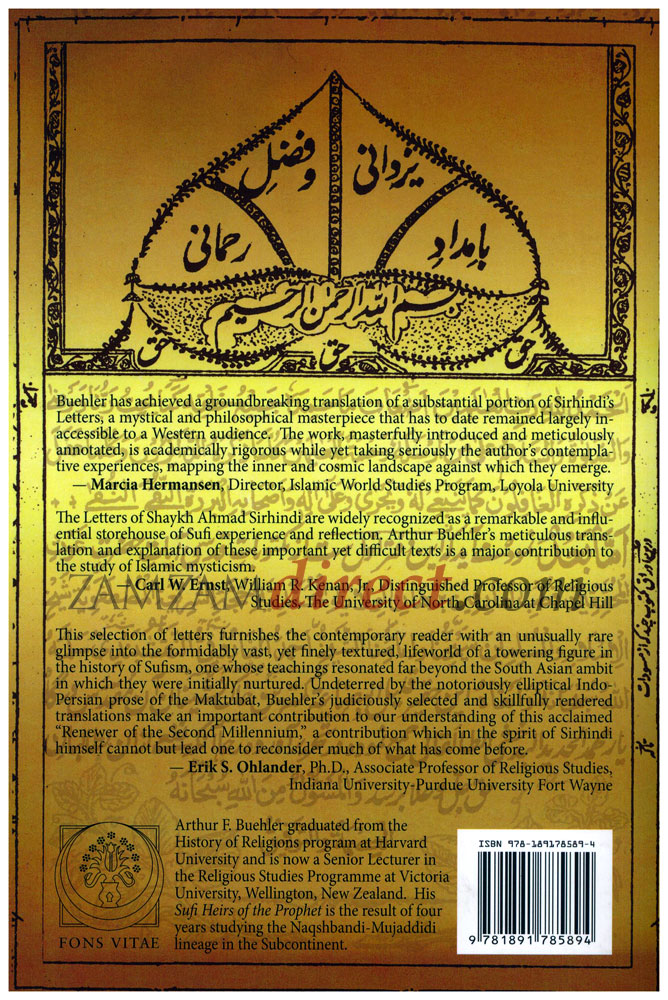 یزدانی وفضلِ
بامدادِ رحمانی
بسم الله الرحمن الرحیم
حق حق حق
Buehler has achieved a groundbreaking translation of a substantial portion of Sirhindi’s
Letters, a mystical and philosophical masterpiece that has to date remained largely in-
accessible to a Western audience. The work, masterfully introduced and meticulously
annotated, is academically rigorous while yet taking seriously the author’s contempla-
tive experiences, mapping the inner and cosmic landscape against which they emerge.
— Marcia Hermansen, Director, Islamic World Studies Program, Loyola University
The Letters of Shaykh Ahmad Sirhindi are widely recognized as a remarkable and influ-
ential storehouse of Sufi experience and reflection. Arthur Buehler’s meticulous trans-
lation and explanation of these important yet difficult texts is a major contribution to
the study of Islamic mysticism.
— Carl W. Ernst, William R. Kenan, Jr., Distinguished Professor of Religious
Studies, The University of North Carolina at Chapel Hill
ZAMZAMdirect.com
This selection of letters furnishes the contemporary reader with an unusually rare
glimpse into the formidably vast, yet finely textured, lifeworld of a towering figure in
the history of Sufism, one whose teachings resonated far beyond the South Asian ambit
in which they were initially nurtured. Undeterred by the notoriously elliptical Indo-
Persian prose of the Maktubat, Buehler’s judiciously selected and skillfully rendered
translations make an important contribution to our understanding of this acclaimed
“Renewer of the Second Millennium,” a contribution which in the spirit of Sirhindi
himself cannot but lead one to reconsider much of what has come before.
— Erik S. Ohlander, Ph.D., Associate Professor of Religious Studies,
Indiana University-Purdue University Fort Wayne
Arthur F. Buehler graduated from the
History of Religions program at Harvard
University and is now a Senior Lecturer in
the Religious Studies Programme at Victoria
University, Wellington, New Zealand. His
Sufi Heirs of the Prophet is the result of four
years studying the Naqshbandi-Mujaddidi
lineage in the Subcontinent.
FONS VITAE
ISBN 978-189178589-4
9 781891 785894